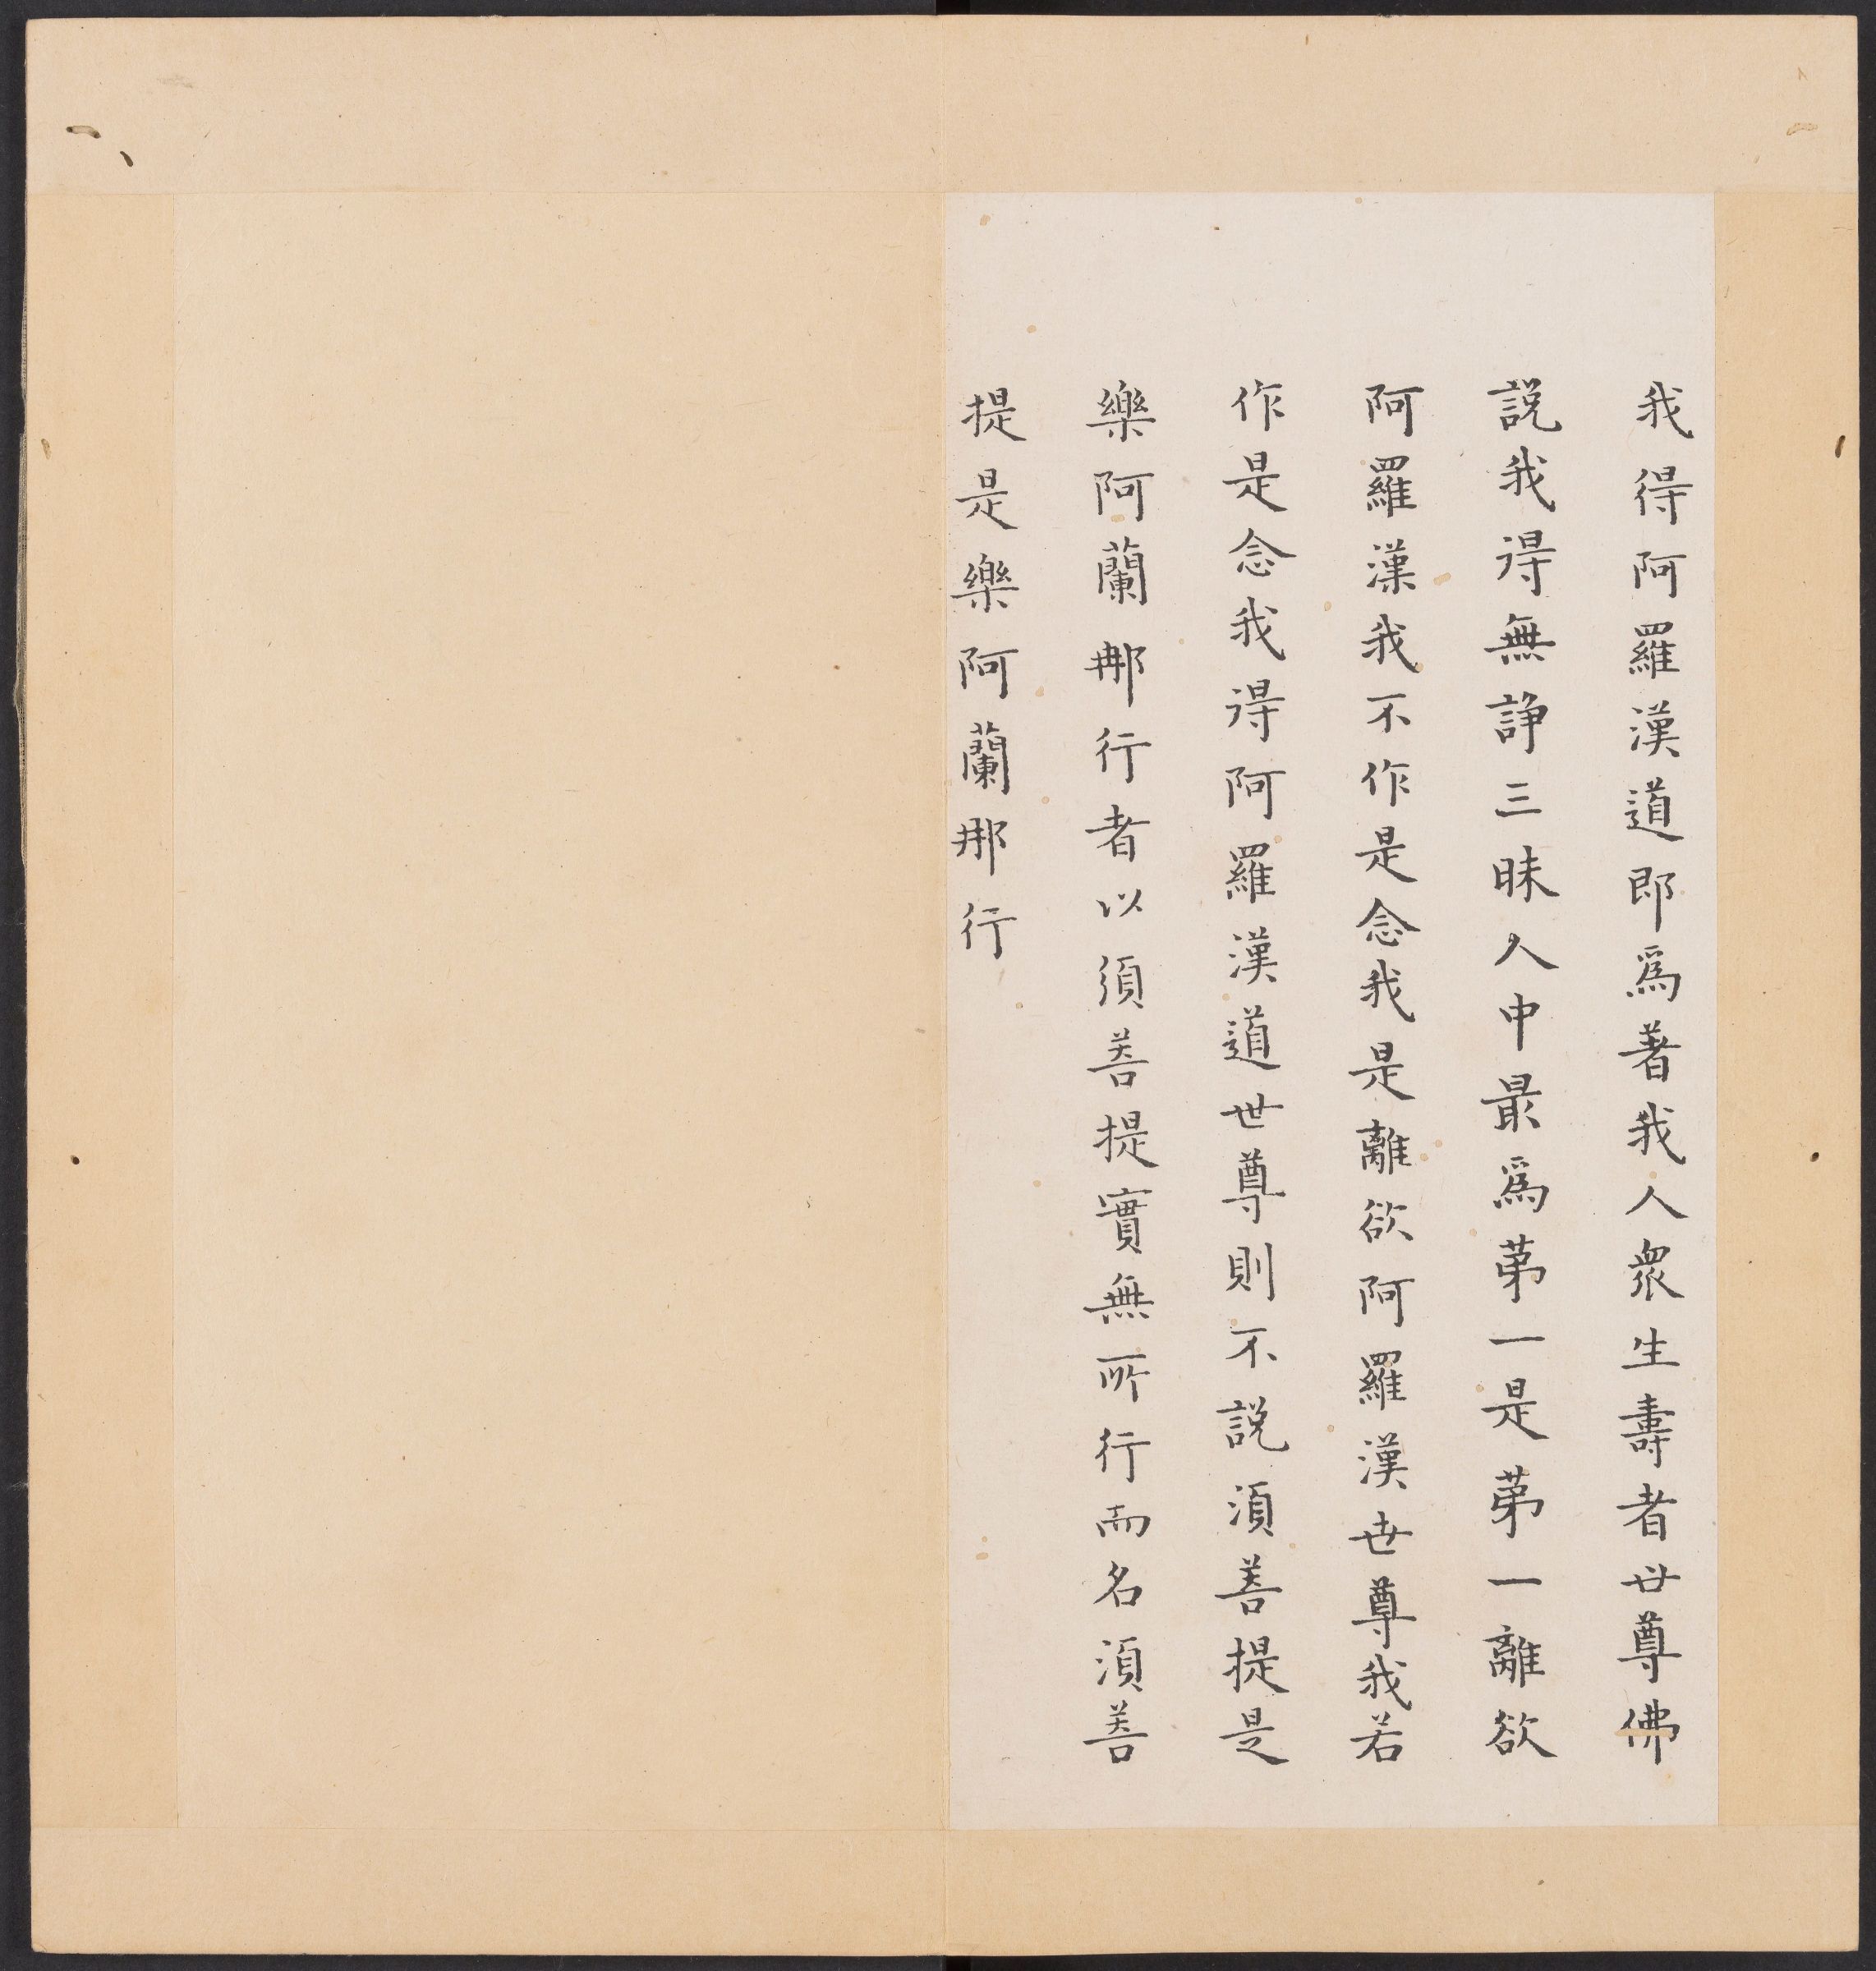 我得阿羅漢道即爲著我人衆生壽者世尊佛
説我得無諍三昧人中最爲苐一是苐一離欲
阿羅漢我不作是念我是離欲阿羅漢世尊我若
作是念我得阿羅漢道世尊則不説須菩提是
樂阿蘭那行者以須菩提實無所行而名須菩
提是樂阿蘭那行